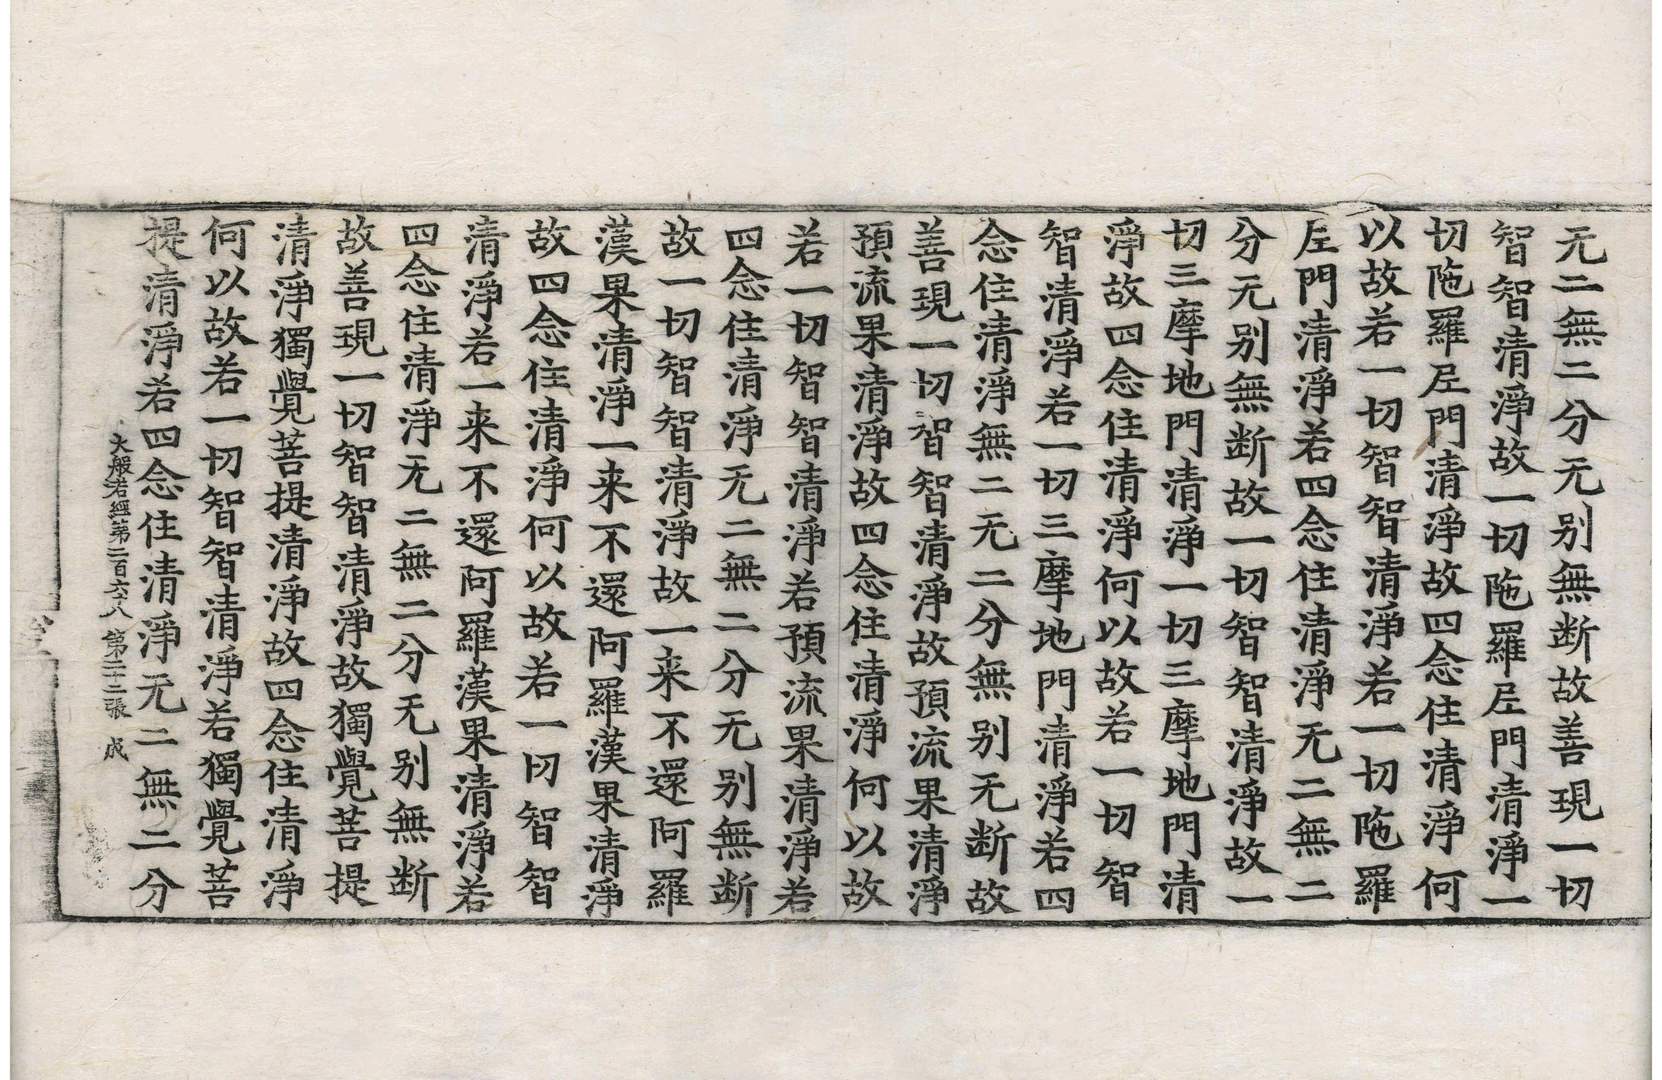 无二無二分无别無断故善現一切
智智清淨故一切陁羅𡰱門清淨一
切陁羅𡰱門清淨故四念住清淨何
以故若一切智智清淨若一切陁羅
𡰱門清淨若四念住清淨无二無二
分无别無断故一切智智清淨故一
切三摩地門清淨一切三摩地門清
淨故四念住清淨何以故若一切智
智清淨若一切三摩地門清淨若四
念住清淨無二无二分無别无断故
善現一切智智清淨故預流果清淨
預流果清淨故四念住清淨何以故
若一切智智清淨若預流果清淨若
四念住清淨无二無二分无别無断
故一切智智清淨故一来不還阿羅
漢果清淨一来不還阿羅漢果清淨
故四念住清淨何以故若一切智智
清淨若一来不還阿羅漢果清淨若
四念住清淨无二無二分无别無断
故善現一切智智清淨故獨覺菩提
清淨獨覺菩提清淨故四念住清淨
何以故若一切智智清淨若獨覺菩
提清淨若四念住清淨无二無二分
大般若經第二百六八 第二十二張 戍